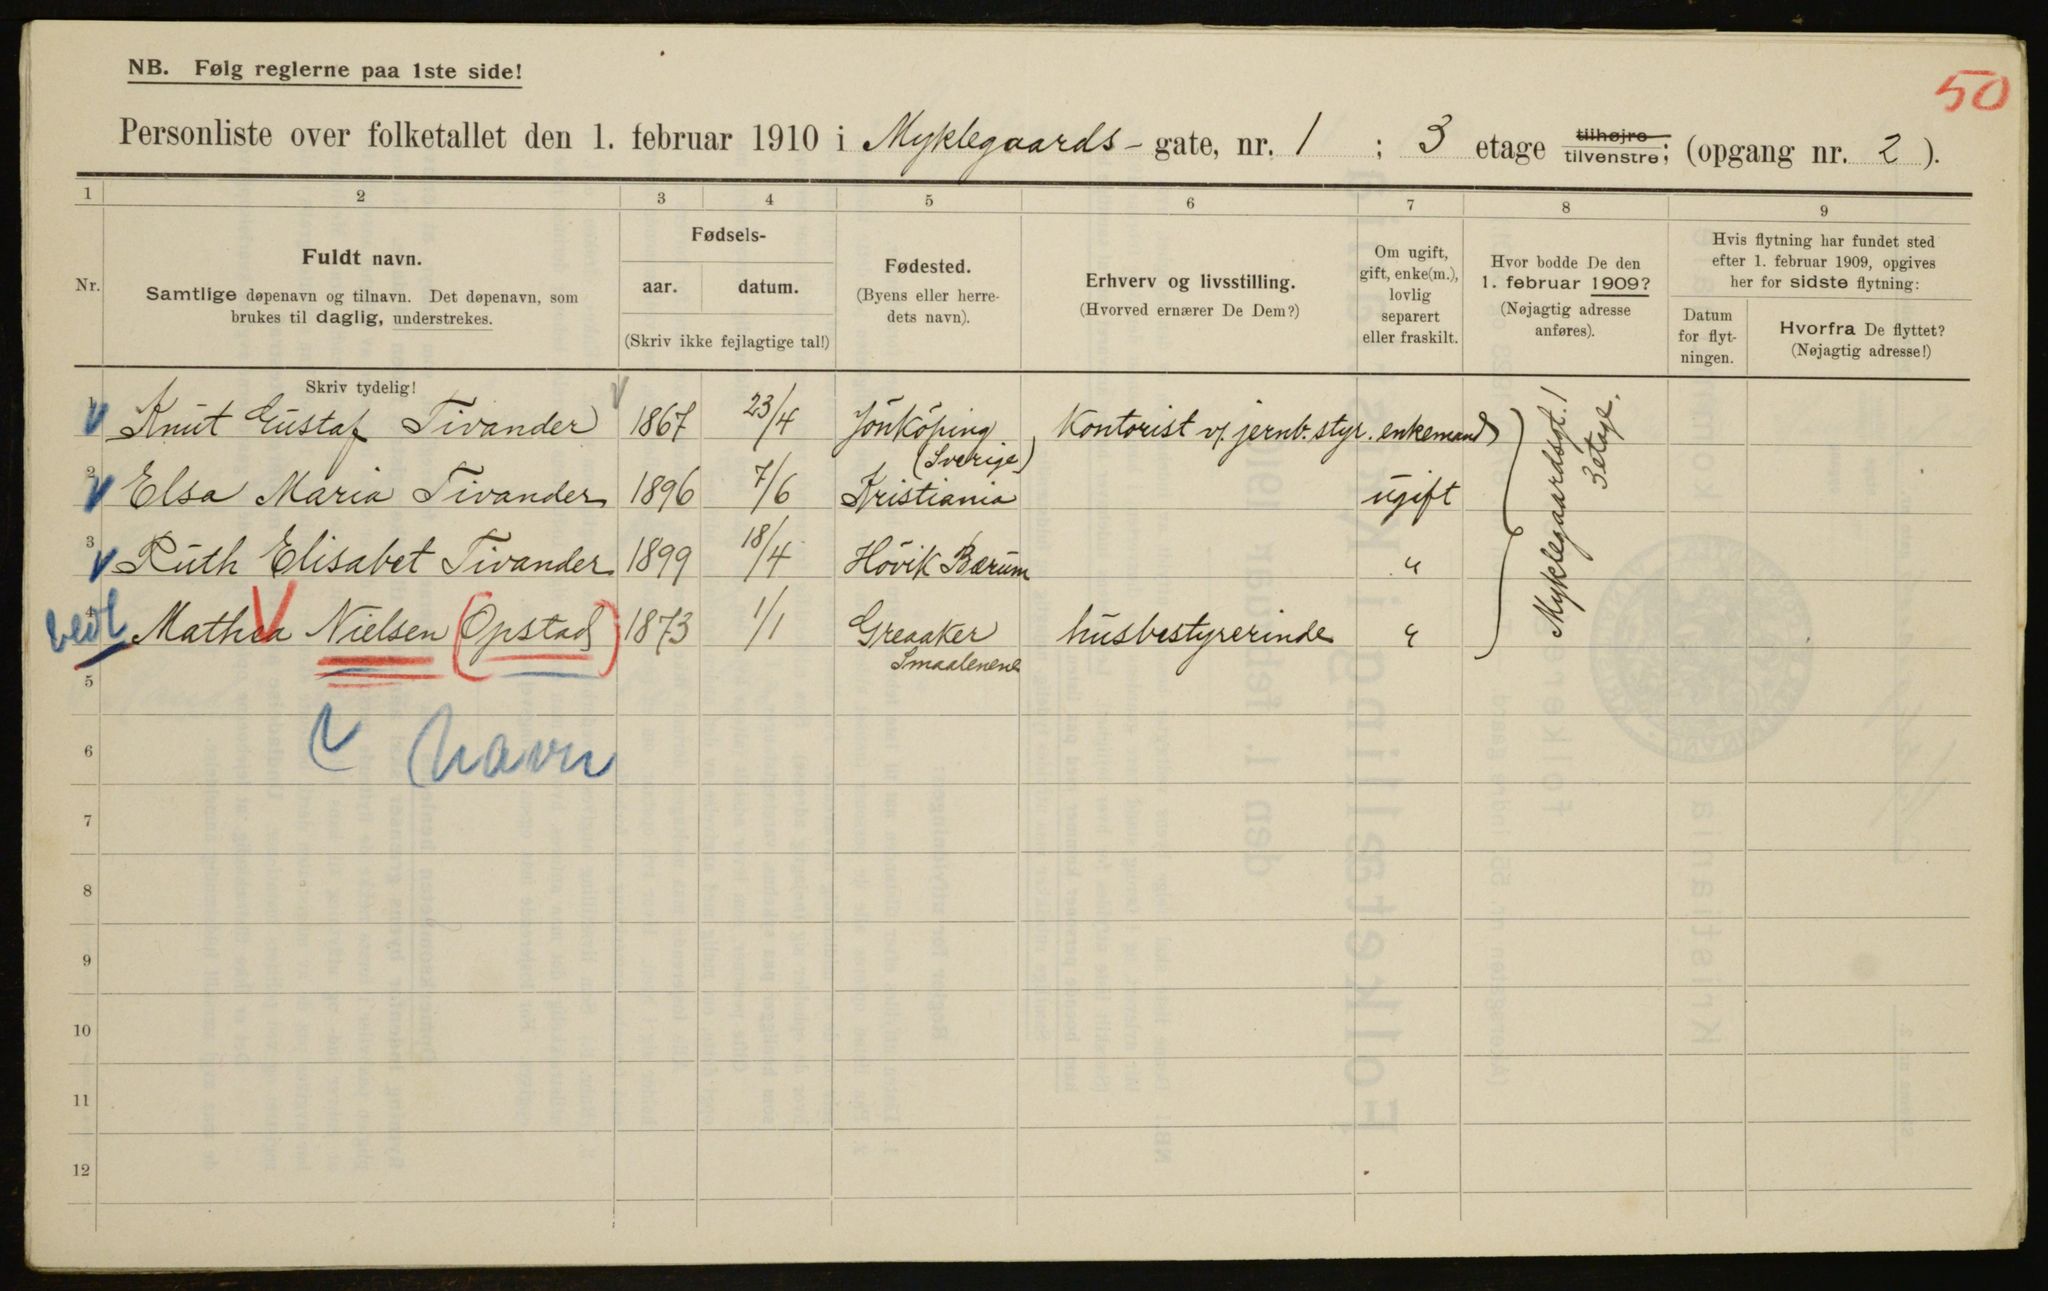 NB. Følg reglerne paa 1ste side!
50
Personliste over folketallet den 1. februar 1910 i Myklegaards- gate, nr. 1 ; 3 etage tilhøjre tilvenstre; (opgang nr. 2 ).
1 2 3 4 5 6 7 8 9
Nr.
Fuldt navn.
Samtlige døpenavn og tilnavn. Det døpenavn, som
brukes til daglig, understrekes.
Fødsels-
aar. datum.
(Skriv ikke fejlagtige tal!)
Fødested.
(Byens eller herre-
dets navn).
Erhverv og livsstilling.
(Hvorved ernærer De Dem?)
Om ugift,
gift, enke(m.),
lovlig
separert
eller fraskilt.
Hvor bodde De den
1. februar 1909?
(Nøjagtig adresse
anføres).
Hvis flytning har fundet sted
efter 1. februar 1909, opgives
her for sidste flytning:
Datum
for flyt-
ningen.
Hvorfra De flyttet?
(Nøjagtig adresse!)
Skriv tydelig!
1 Knut Gustaf Tivander 1867 23/4 Jönköping (Sverige) Kontorist v/ jernb. styr. enkemand
Myklegaardsgt. 1
3 etage.
2 Elsa Maria Tivander 1896 7/6 Kristiania ugift
3 Ruth Elisabet Tivander 1899 18/4 Hövik Bærum "
4 Mathea Nielsen (Opstad) 1873 1/1 Greaaker Smaalenene husbestyrerinde "
5
navn
6
7
8
9
10
11
12